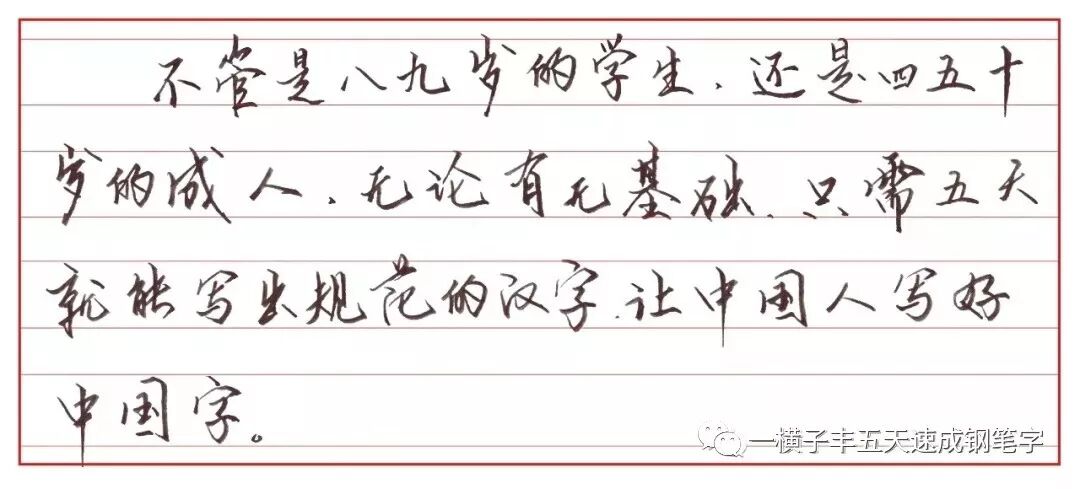 不管是八九岁的学生，还是四五十
岁的成人，无论有无基础，只需五天
就能写出规范的汉字，让中国人写好
中国字。
一横子丰五天速成钢笔字